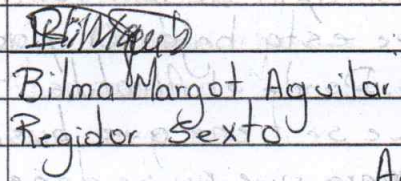 Bilma Margot Aguilar
Regidor Sexto
A